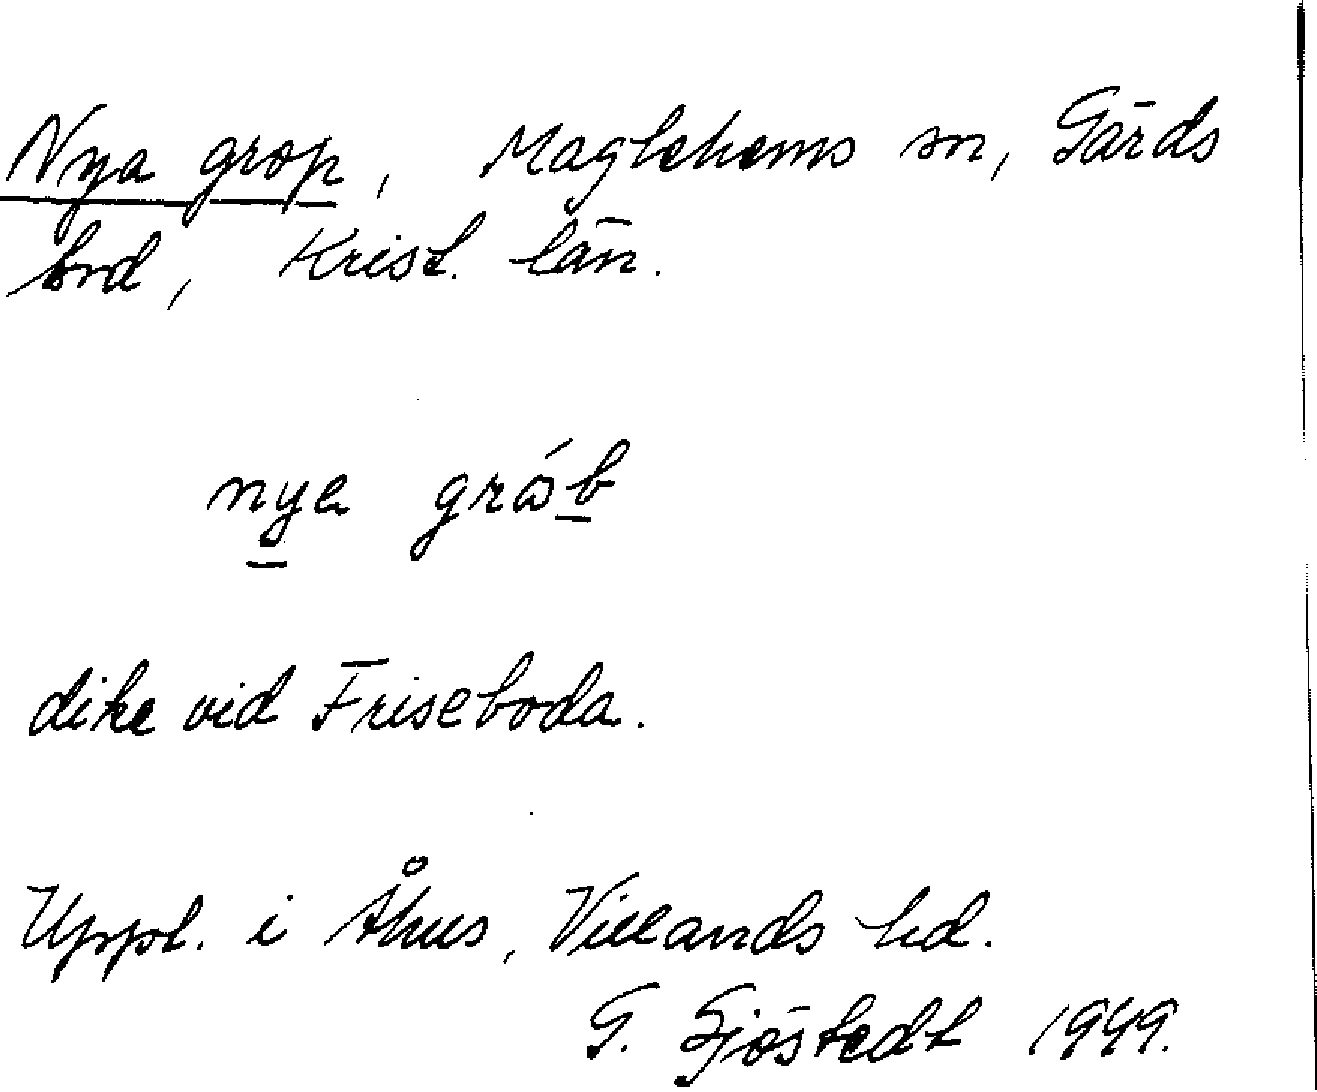 Nya grop, Maglehems sn, Gärds
hrd, Krist. län.
nya gráb
dike vid Friseboda.
Uppt. i Åhus, Villands hd.
G. Sjöstedt 1949.